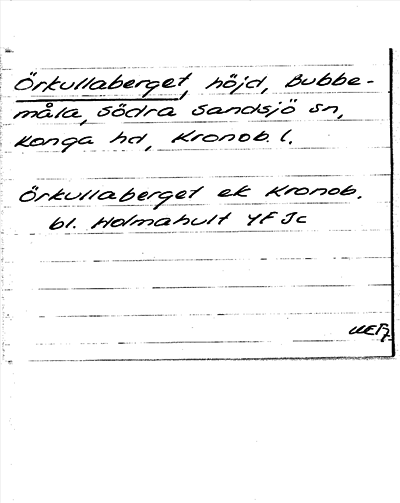 Örkullaberget, höjd, Bubbe-
måla, Södra Sandsjö sn,
Konga hd, Kronob. l.
Örkullaberget ek Kronob.
bl. Holmahult 4F Jc